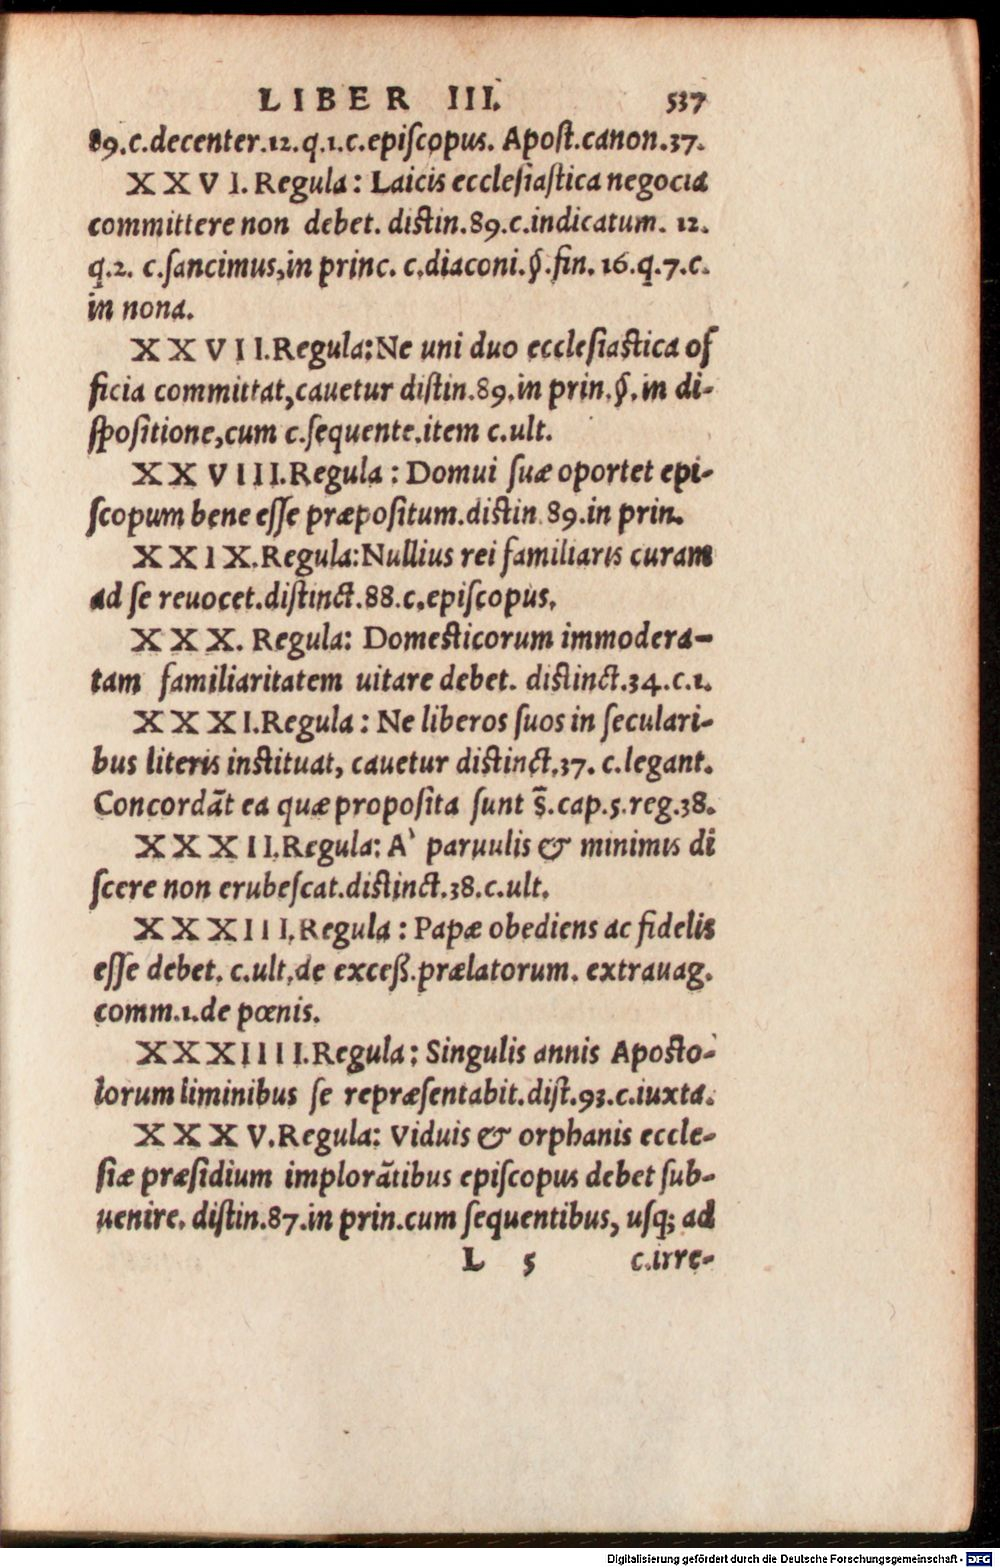 LIBER III. 537
89.c.decenter.12.q.1.c.episcopus. Apost.canon.37.
XXVI. Regula: Laicis ecclesiastica negocia
committere non debet. distin.89.c.indicatum. 12.
q.2. c.sancimus,in princ. c.diaconi.§.fin. 16.q.7.c.
in nona.
XXVII.Regula:Ne uni duo ecclesiastica of
ficia committat,cauetur distin.89.in prin.§.in di-
spositione,cum c.sequente.item c.ult.
XXVIII.Regula: Domui suæ oportet epi-
scopum bene esse præpositum.distin.89.in prin.
XXIX.Regula:Nullius rei familiaris curam
ad se reuocet.distinct.88.c.episcopus.
XXX. Regula: Domesticorum immodera-
tam familiaritatem uitare debet. distinct.34.c.1.
XXXI.Regula: Ne liberos suos in seculari-
bus literis instituat, cauetur distinct.37. c.legant.
Concordãt ea quæ proposita sunt s̃.cap.5.reg.38.
XXXII.Regula: A` paruulis & minimis di
scere non erubescat.distinct.38.c.ult.
XXXIII.Regula: Papæ obediens ac fidelis
esse debet. c.ult.de exceß.prælatorum. extrauag.
comm.1.de pœnis.
XXXIIII.Regula: Singulis annis Aposto-
lorum liminibus se repræsentabit.dist.93.c.iuxta.
XXXV.Regula: Viduis & orphanis eccle-
siæ præsidium implorãtibus episcopus debet sub-
uenire. distin.87.in prin.cum sequentibus, usq; ad
L 5 c.irre-
Digitalisierung gefördert durch die Deutsche Forschungsgemeinschaft - DFG